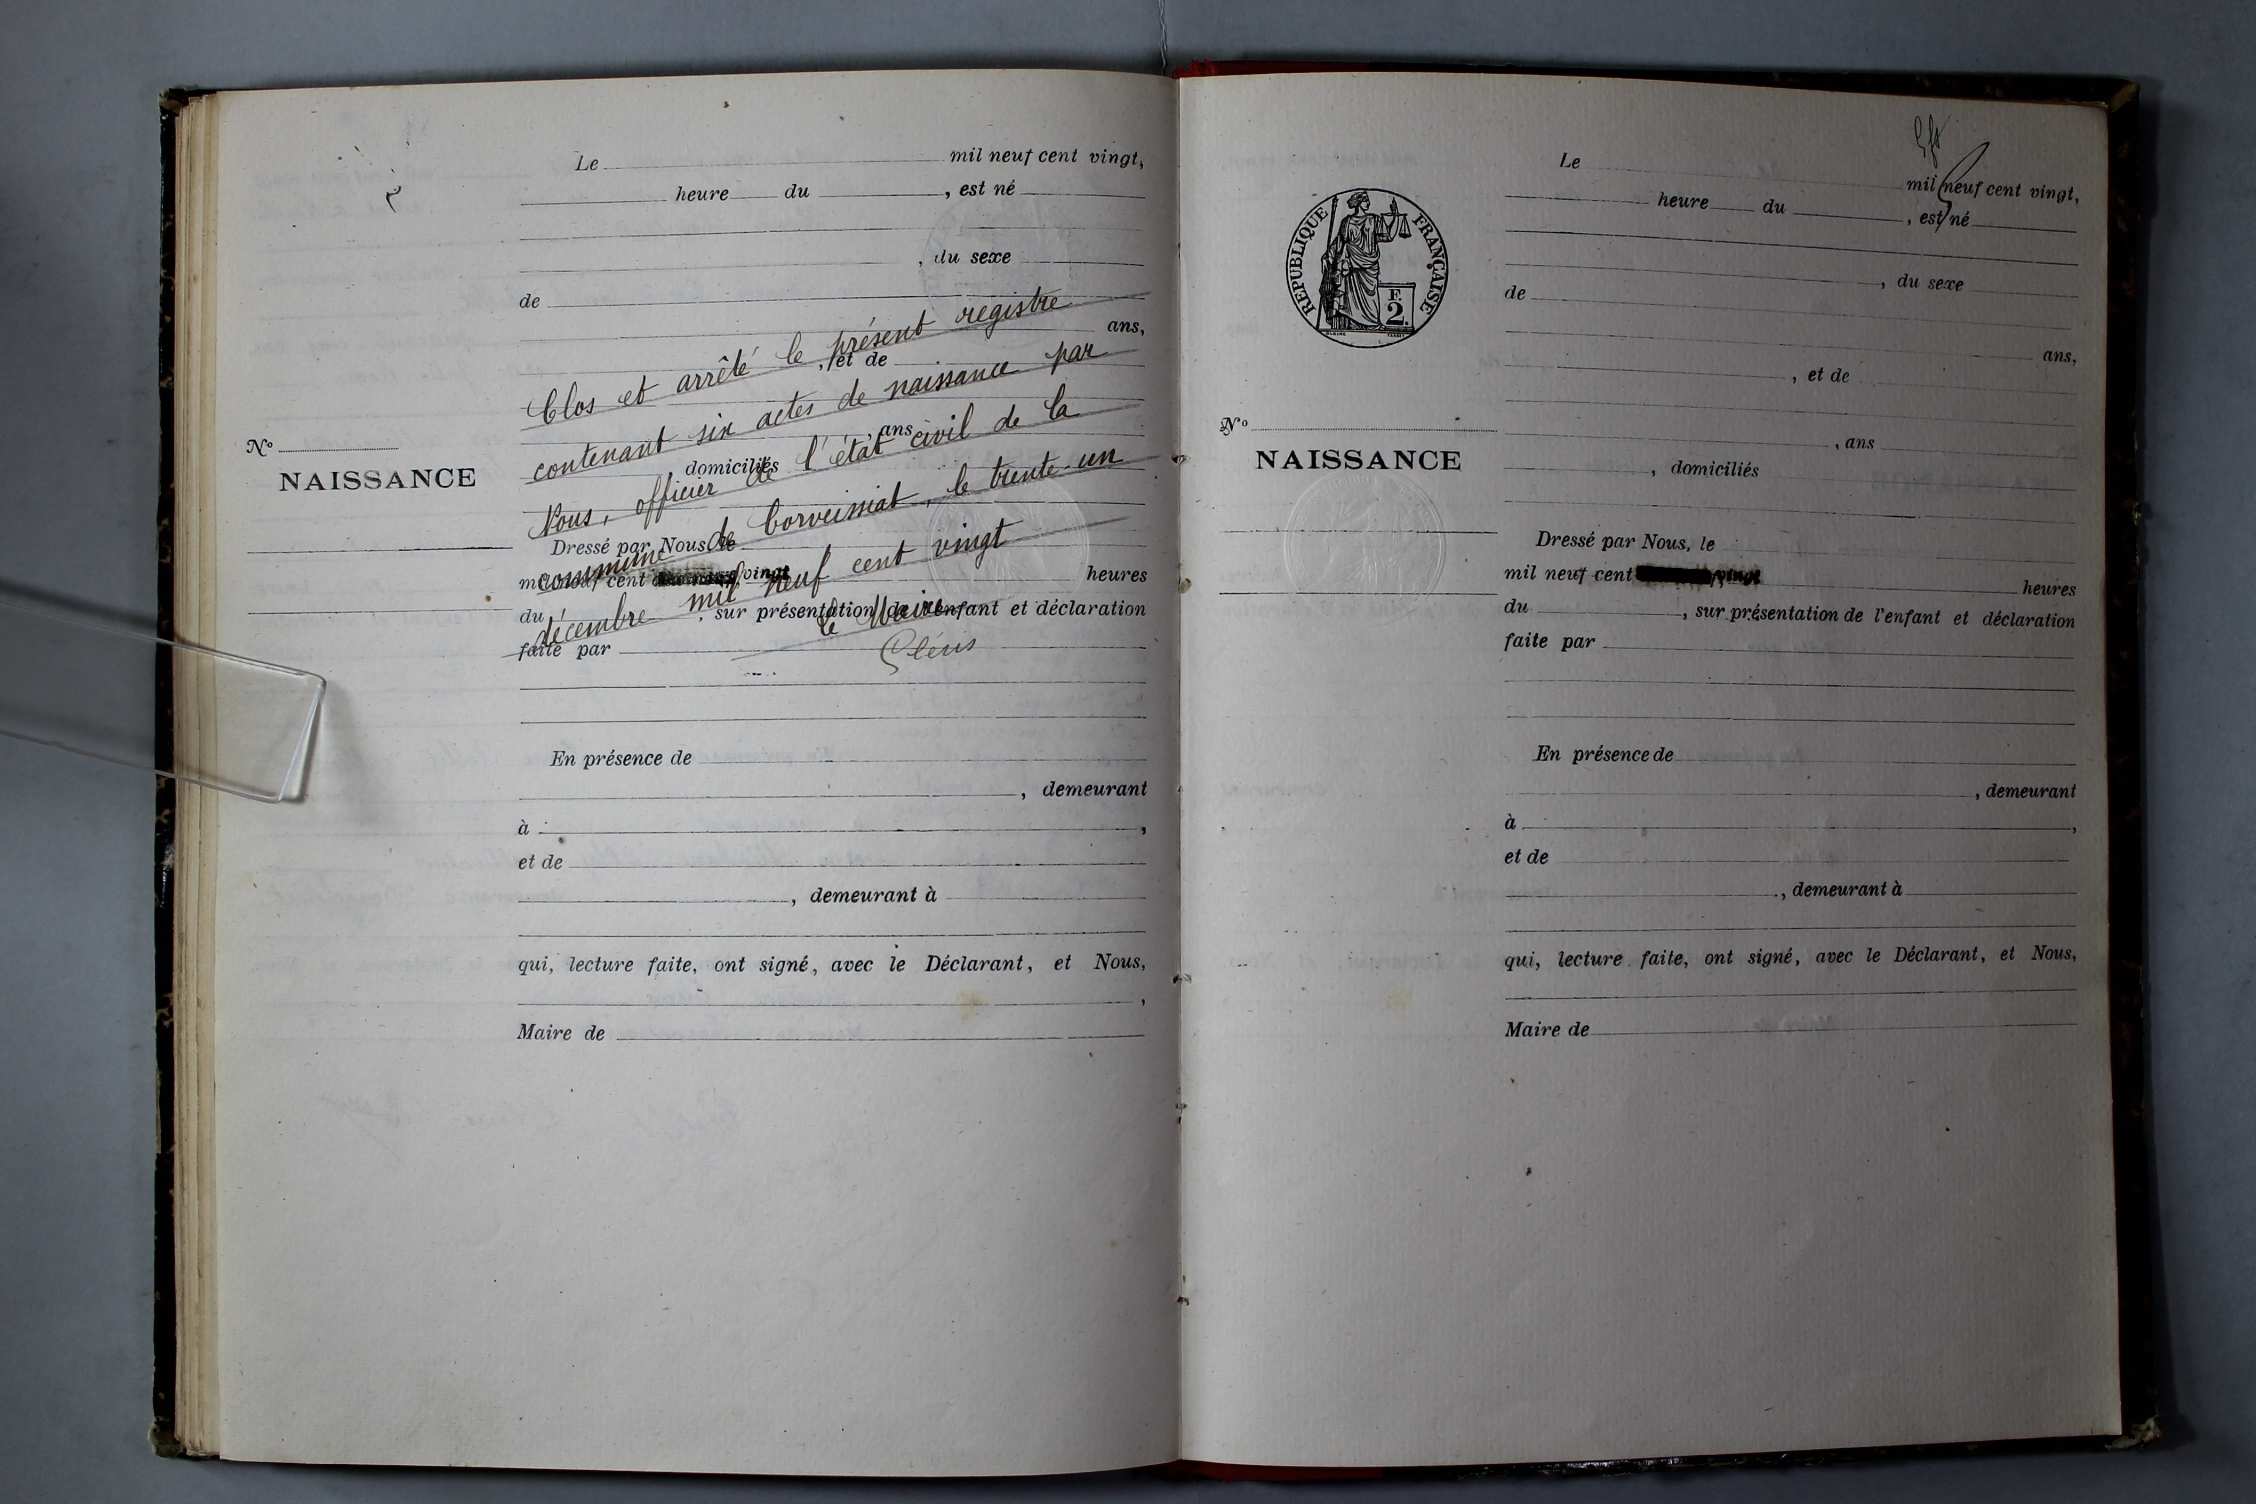 Le mil neuf cent vingt,
heure du , est né
, du sexe
de
ans,
, et de
, ans
domiciliés
N°
NAISSANCE
Clos et arrêté le présent registre
contenant six actes de naissance par
Nous, officier de l'état civil de la
commune de Corveissiat, le trente-un
décembre mil neuf cent vingt
Le Maire
Dressé par Nous, le
mil neuf cent vingt
heures
du , sur présentation de l'enfant et déclaration
faite par
En présence de
, demeurant
à ,
et de
, demeurant à
qui, lecture faite, ont signé, avec le Déclarant, et Nous,
,
Maire de
RÉPUBLIQUE FRANÇAISE
F.
2.
Le mil neuf cent vingt,
heure du , est né
, du sexe
de
ans,
, et de
, ans
, domiciliés
N°
NAISSANCE
Dressé par Nous, le
mil neuf cent vingt
heures
du , sur présentation de l'enfant et déclaration
faite par
En présence de
, demeurant
à ,
et de
, demeurant à
qui, lecture faite, ont signé, avec le Déclarant, et Nous,
Maire de